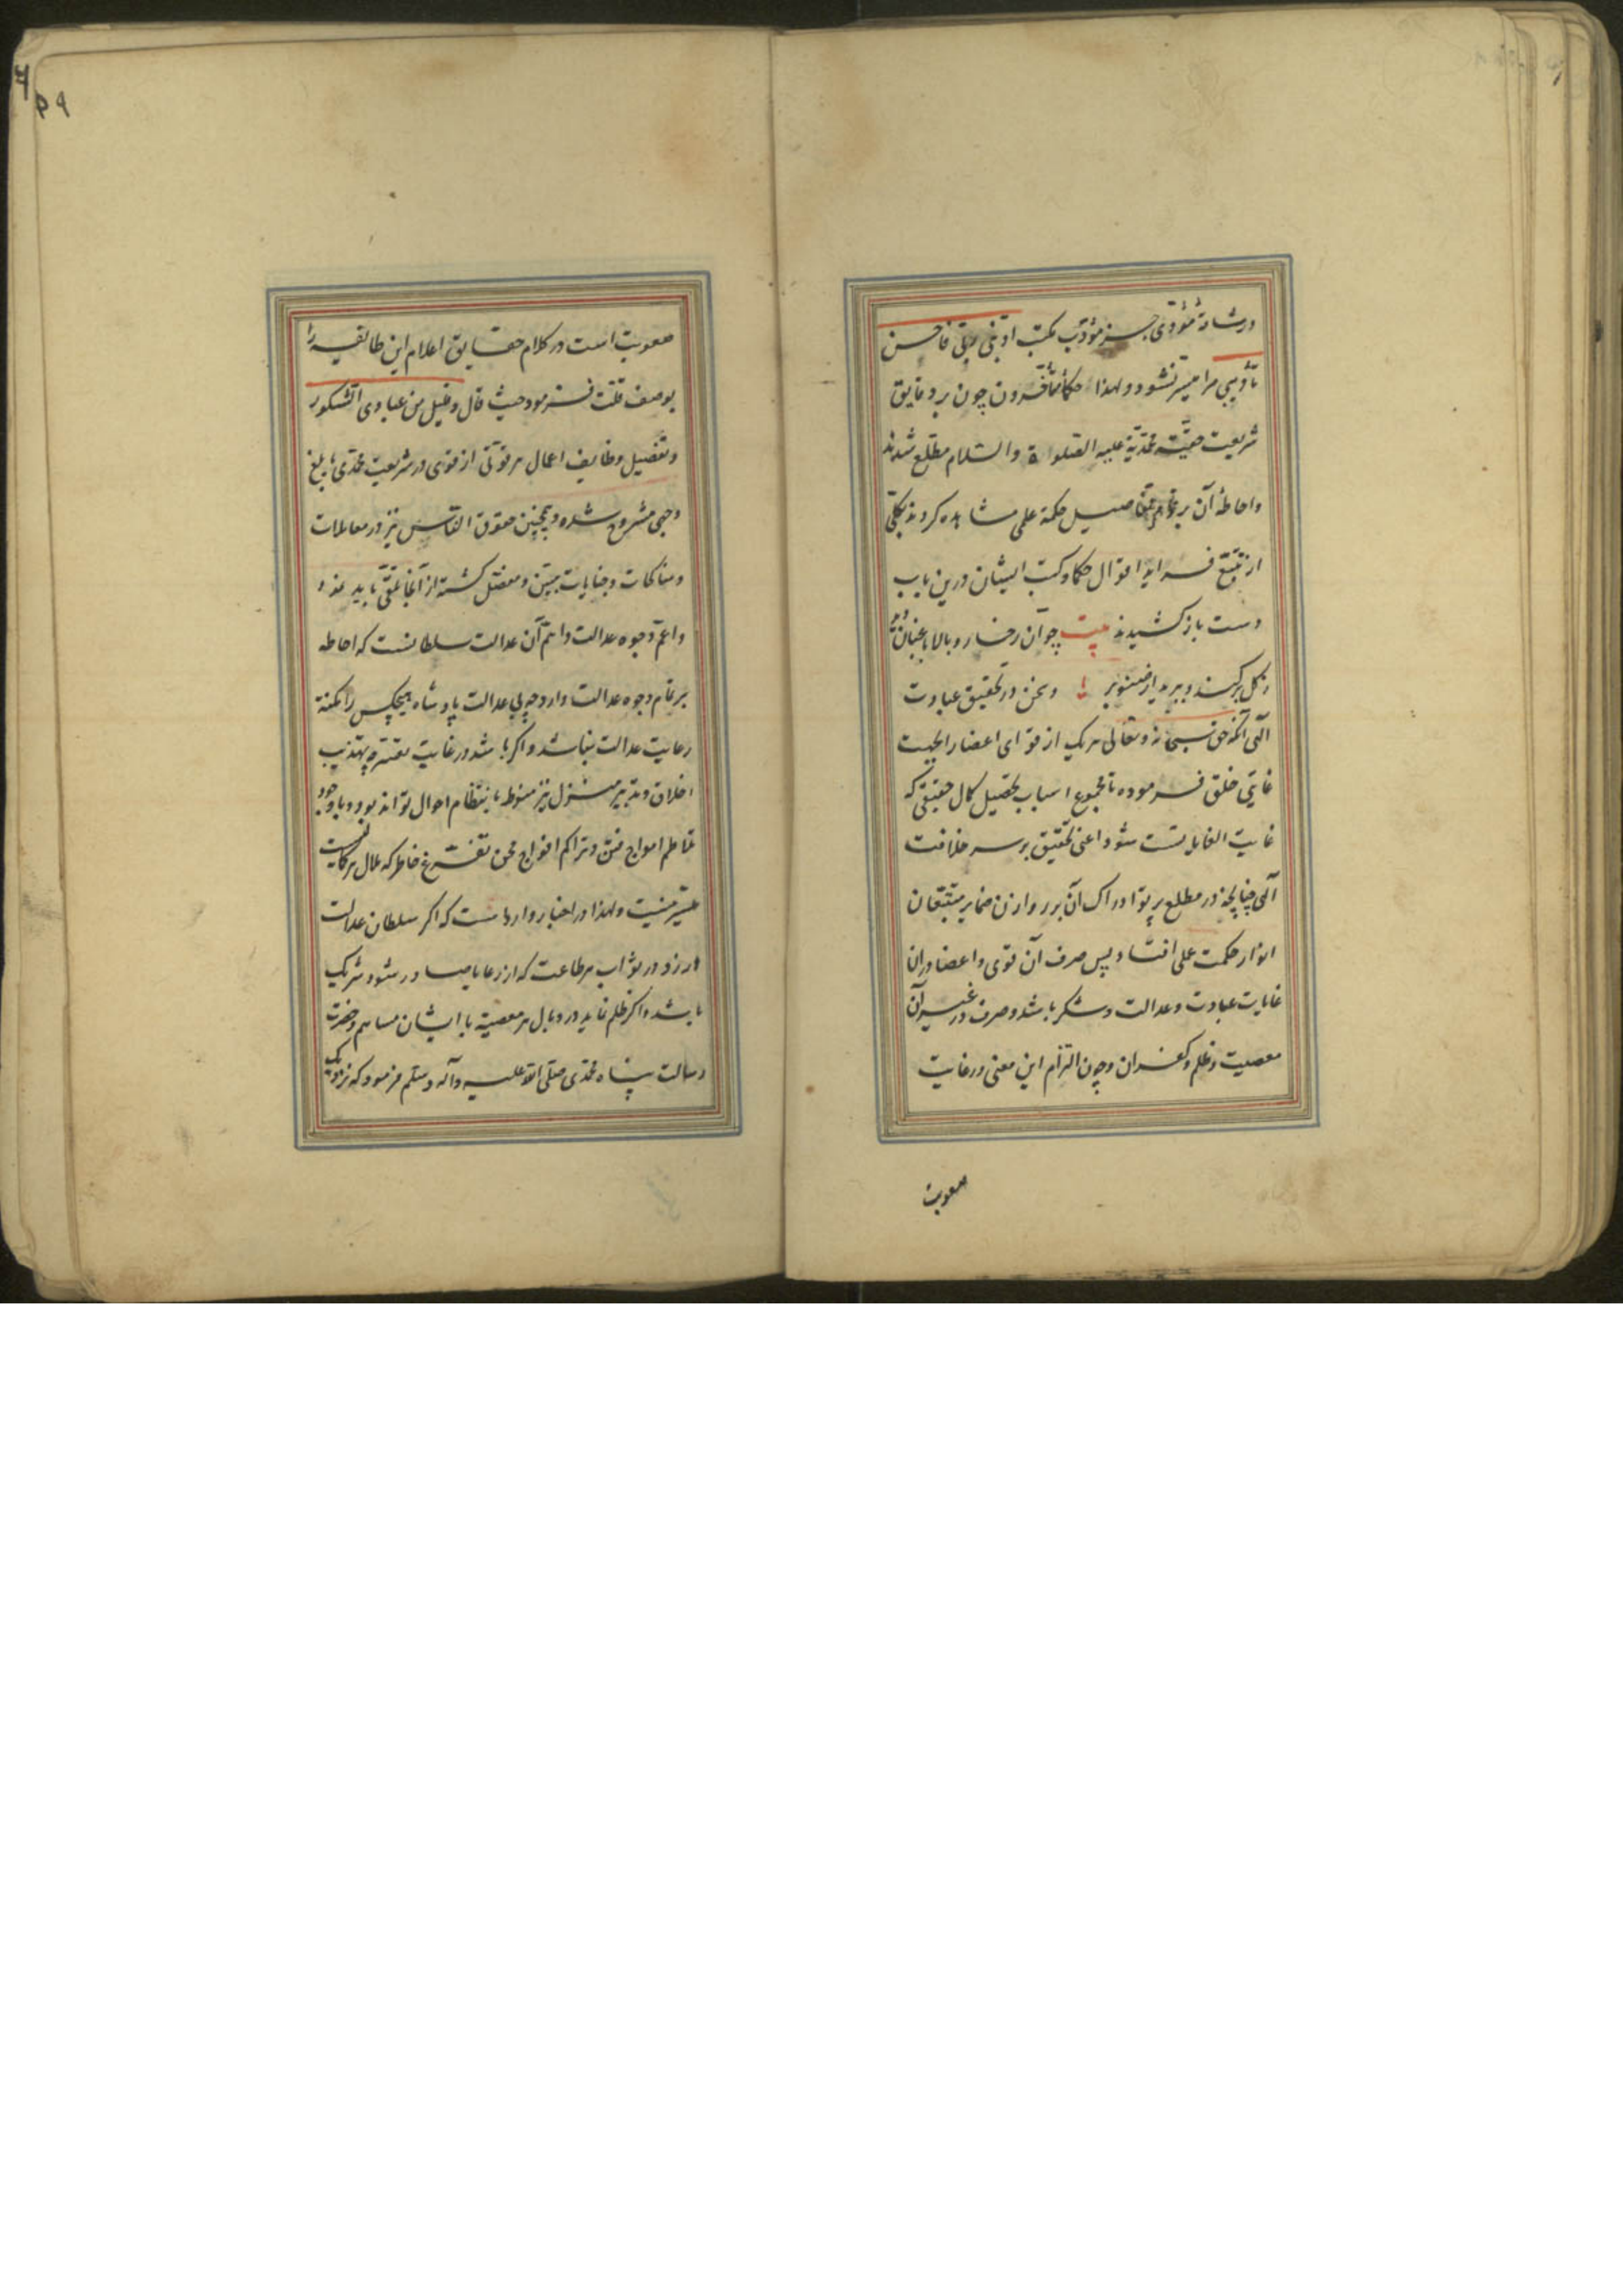 تأدیبی مرا میسر نشود و لهذا حکماء متأخرون چون بر دقایق
شریعت حقیه محمدیه علیه الصلواة والسلام مطلع شدند
واحاطهٔ آن بر تمامی تفاصیل حکمة علمی مشاهده کردند بکلی
از تتبع فواید اقوال حکما و کتب ایشان درین باب
دست باز کشیدند بیت چو آن رخسار و بالا باغبان دید
ز گل برکند و ببرید از صنوبر وسخن در تحقیق عبادت
الهی آنکه حق سبحانه وتعالی هر یک از قوای اعضا را بجهت
غایتی خلق فرموده تا مجموع اسباب تحصیل کمال حقیقی که
غایت الغایات است شود اعنی تحقیق بر سر خلافت
الهی چنانچه در مطلع پرتو ادراک آن بر روازن ضمایر متتبعان
انوار حکمت علی افتاد پس صرف آن قوی و اعضا در آن
غایات عبادت وعدالت وشکر باشد وصرف در غیر آن
معصیت وظلم وکفران وچون التزام این معنی در غایت
صعوبت
صعوبت است در کلام حقایق اعلام این طایفه را
بوصف قلت فرمود حیث قال وقلیل من عبادی الشکور
وتفصیل وظایف اعمال هر قوتی از قوی در شریعت محمدی بابلغ
وجهی مشروح شده وهمچنین حقوق الناس نیز در معاملات
ومناکحات وجنایات مبین ومفصل گشته از آنجا تلقی باید نمود
واعم وجوه عدالت واهم آن عدالت سلطانست که احاطه
بر تمام وجوه عدالت دارد چه بی عدالت پادشاه هیچکس را مکنة
رعایت عدالت نباشد واگر باشد در غایت تعسر چه تهذیب
اخلاق وتدبیر منزل نیز منوط بانتظام احوال تواند بود وبا وجود
تلاطم امواج فتن وتراکم افواج محن تفرغ خاطر که
میسر نیست ولهذا در اخبار وارد است که اگر سلطان عدالت
ورزد در ثواب هر طاعت که از رعایا صادر شود شریک
باشد واگر ظلم نماید در وبال هر معصیة با ایشان مساهم وحضرت
رسالت پناه محمدی صلی الله علیه وآله وسلم فرمود که نزدیک